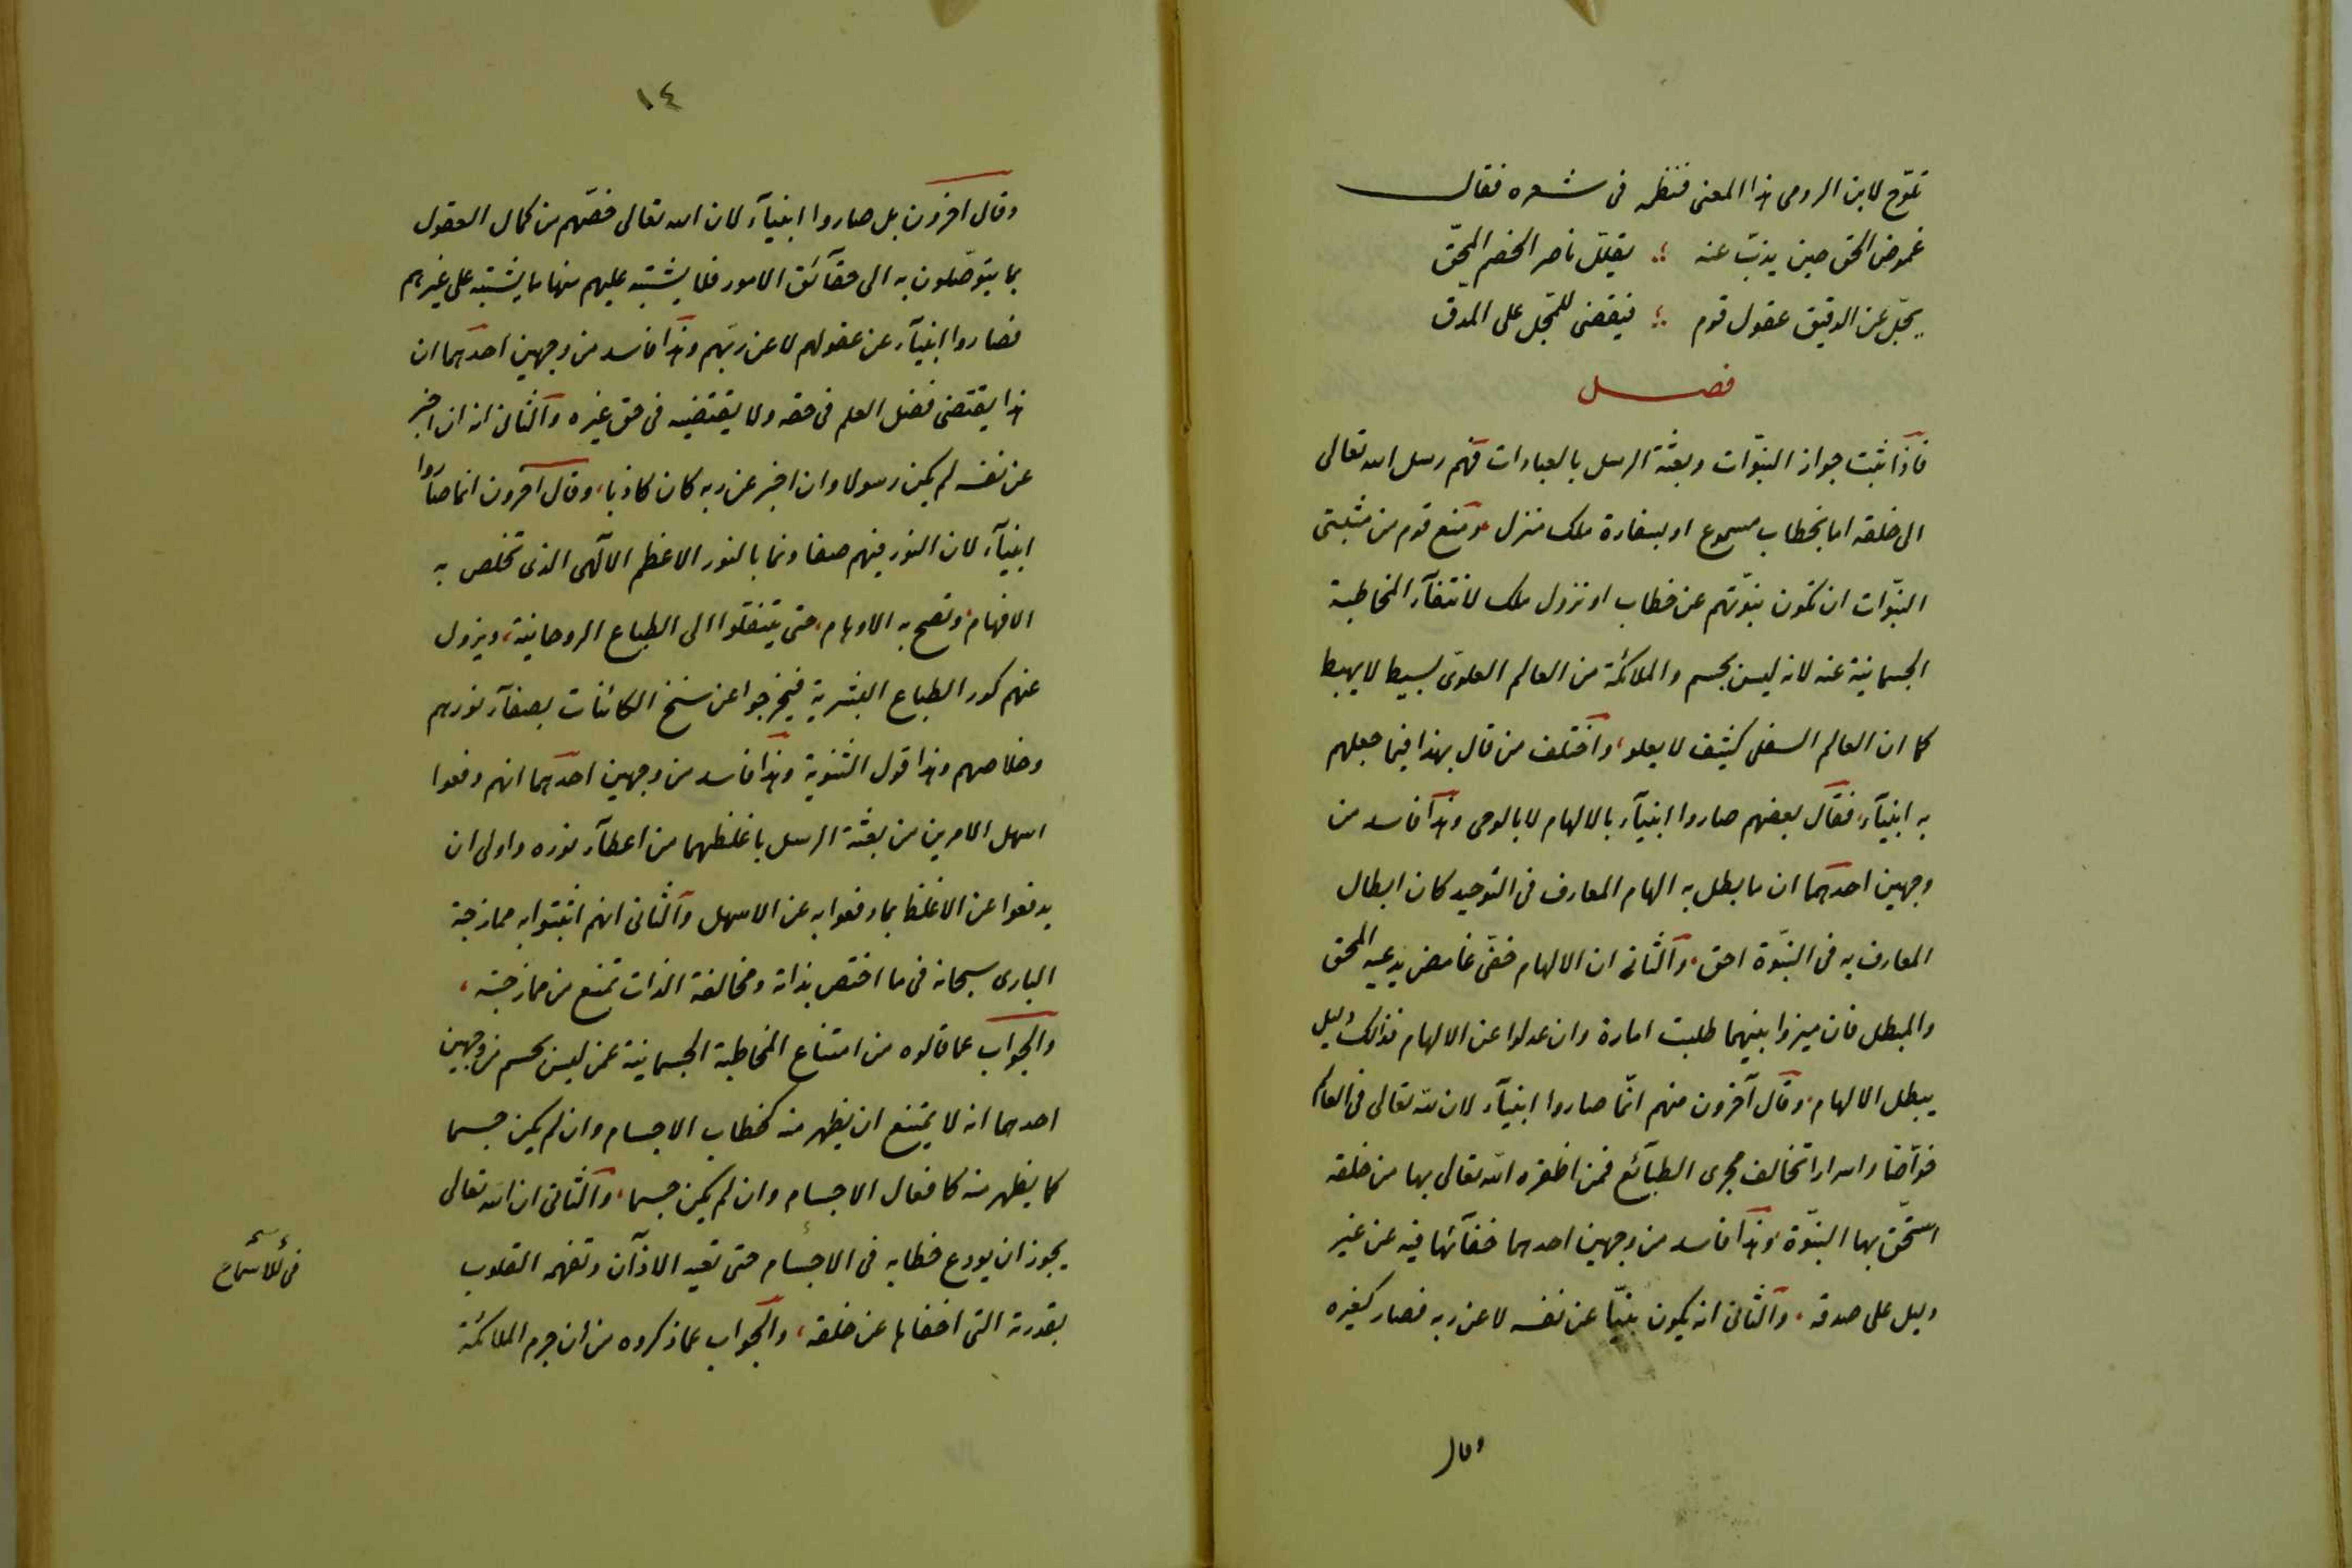 تلوّح لابن الرومى هذا المعنى فنظمه فى شعره فقال
غموض الحق حين يذبّ عنه ؛ يقلّل ناصر الخصم المحقّ
يجلّ عن الدقيق عقول قوم ؛ فيقضى للمجلّ على المدقّ
فصل
فاذا ثبت جواز النبوّات وبعثة الرسل بالعبادات فهم رسل الله تعالى
الى خلقه اما بخطاب مسموع او بسفارة ملك منزل ومنع قوم من مثبتى
النبوّات ان تكون نبوّتهم عن خطاب او نزول ملك لانتفآء المخاطبة
الجسمانية عنه لانه ليس بجسم والملائكة من العالم العلوىّ بسيط لا يهبط
كما ان العالم السفلى كثيف لا يعلو، واختلف من قال بهذا فيما جعلهم
به انبيآء، فقال بعضهم صاروا انبيآء بالالهام لا بالوحى وهذا فاسد من
وجهين احدهما ان ما بطل به الهام المعارف فى التوحيد كان ابطال
المعارف به فى النبّوة احق، والثانى ان الالهام خفىّ غامض يدعيه المحق
والمبطل فان ميزوا بينهما طلبت امارة وان عدلوا عن الالهام فذالك دليل
يبطل الالهام، وقال آخرون منهم انّما صاروا انبيآء لان لله تعالى فى العالم
خوآصّا واسرارا تخالف مجرى الطبآئع فمن اظفره الله تعالى بها من خلقه
استحّق بها النبّوة وهذا فاسد من وجهين احدهما خفآئها فيه عن غير
دليل على صدقه، والثانى انه يكون نبيّا عن نفسه لا عن ربه فصار كغيره
وقال
١٤
وقال اخرون بل صاروا انبيآء لان الله تعالى خصّهم من كمال العقول
بما يتوصّلون به الى حقآئق الامور فلا يشتبه عليهم منها ما يشتبه على غيرهم
فصاروا انبيآء عن عقولهم لا عن ربّهم وهذا فاسد من وجهين احدهما ان
هذا يقتضى فضل العلم فى حقه ولا يقتضيه فى حق غيره والثانى انه ان اخبر
عن نفسه لم يكن رسولا وان اخبر عن ربه كان كاذبا، وقال آخرون انما صاروا
انبيآء لان النور فيهم صفا ونما بالنور الاعظم الآلهى الذى تخلص به
الافهام، وتصح به الاوهام، حتى ينتقلوا الى الطباع الروحانية، ويزول
عنهم كدر الطباع البشرية فيخرجوا عن سنخ الكائنات بصفآء نورهم
وخلاصهم وهذا قول الثنوية وهذا فاسد من وجهين احدهما انهم دفعوا
اسهل الامرين من بعثة الرسل باغلظهما من اعطآء نوره واولى ان
يدفعوا عن الاغلظ بما دفعوا به عن الاسهل والثانى انهم اثبتوا به ممازجة
البارى سبحانه فى ما اختص بذاته ومخالفة الذات تمنع من ممازجته،
والجواب عما قالوه من امتناع المخاطبة الجسمانية عمن ليس بجسم من وجهين
احدهما انه لا يمتنع ان يظهر منه كخطاب الاجسام وان لم يكن جسما
كما يظهر منه كافعال الاجسام وان لم يكن جسما، والثانى ان الله تعالى
يجوز ان يودع خطابه فى الاجسام حتى تعيه الاذآن وتفهمه القلوب
فى الاسماع
بقدرته التى اخفاها عن خلقه، والجواب عما ذكروه من ان جرم الملائكة